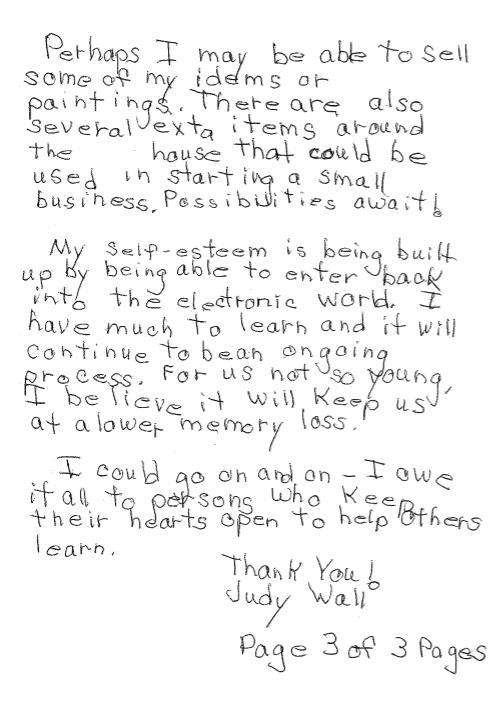 Perhaps I may be able to sell
some of my idems or
paintings. There are also
several exta items around
the house that could be
used in starting a small
business. Possibilities await!
My self-esteem is being built
up by being able to enter back
into the electronic world. I
have much to learn and it will
continue to be an ongoing
process. For us not so young,
I believe it will keep us
at a lower memory loss.
I could go on and on - I owe
it all to persons who keep
their hearts open to help others
learn.
Thank You!
Judy Wall
Page 3 of 3 Pages